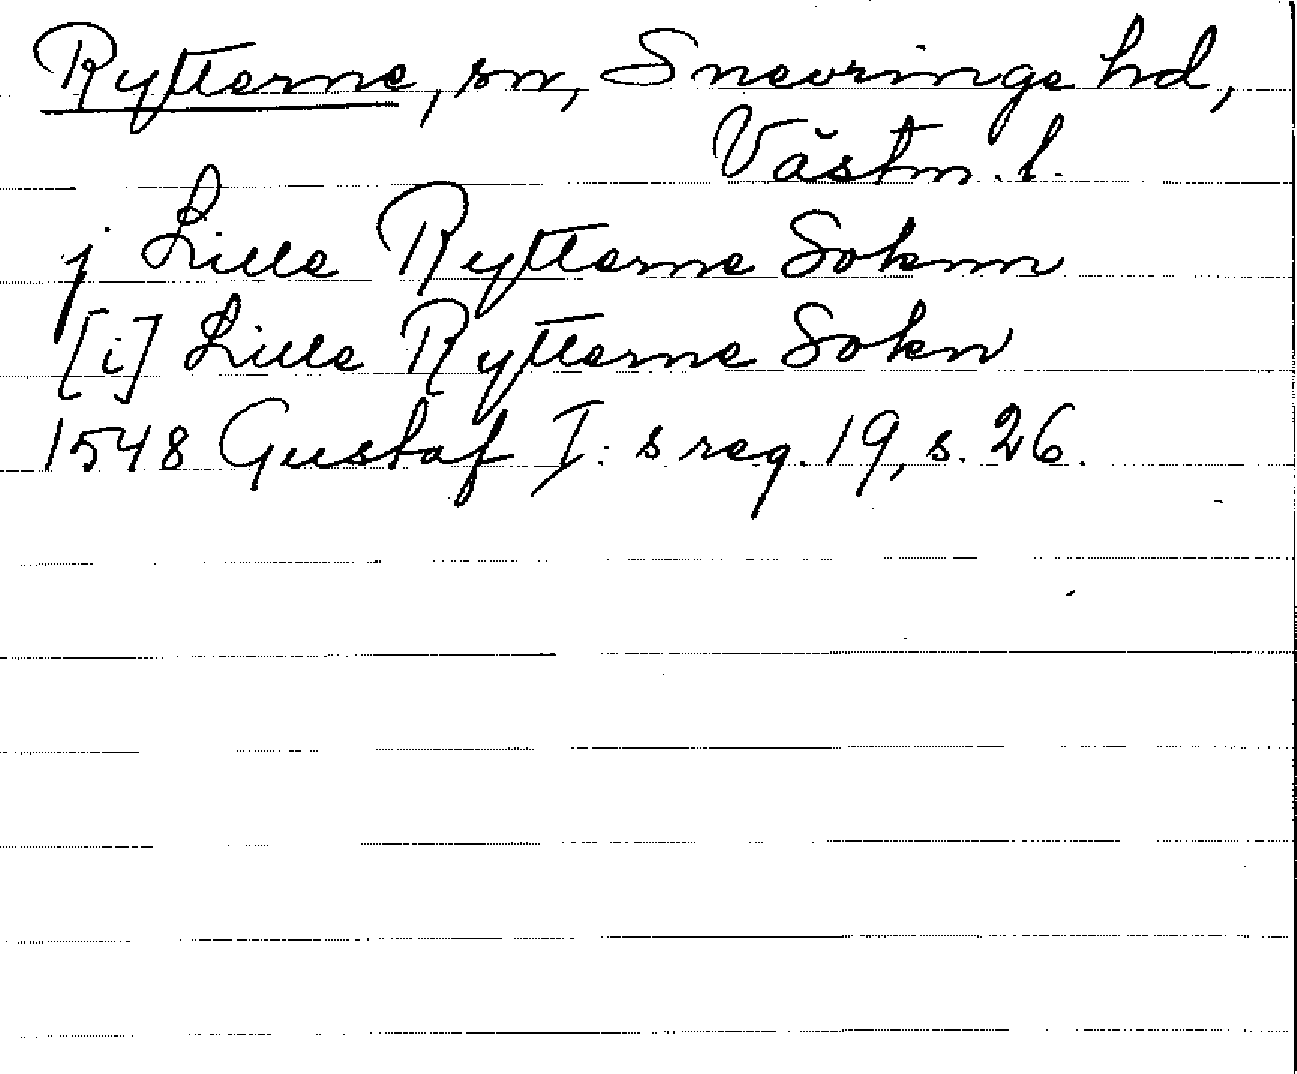 Rytterne, sn, Snevringe hd,
Västm. l.
j Lille Rytterne Soknn
[i] Lille Rytterne Sokn
1548 Gustaf I: s reg. 19, s. 26.